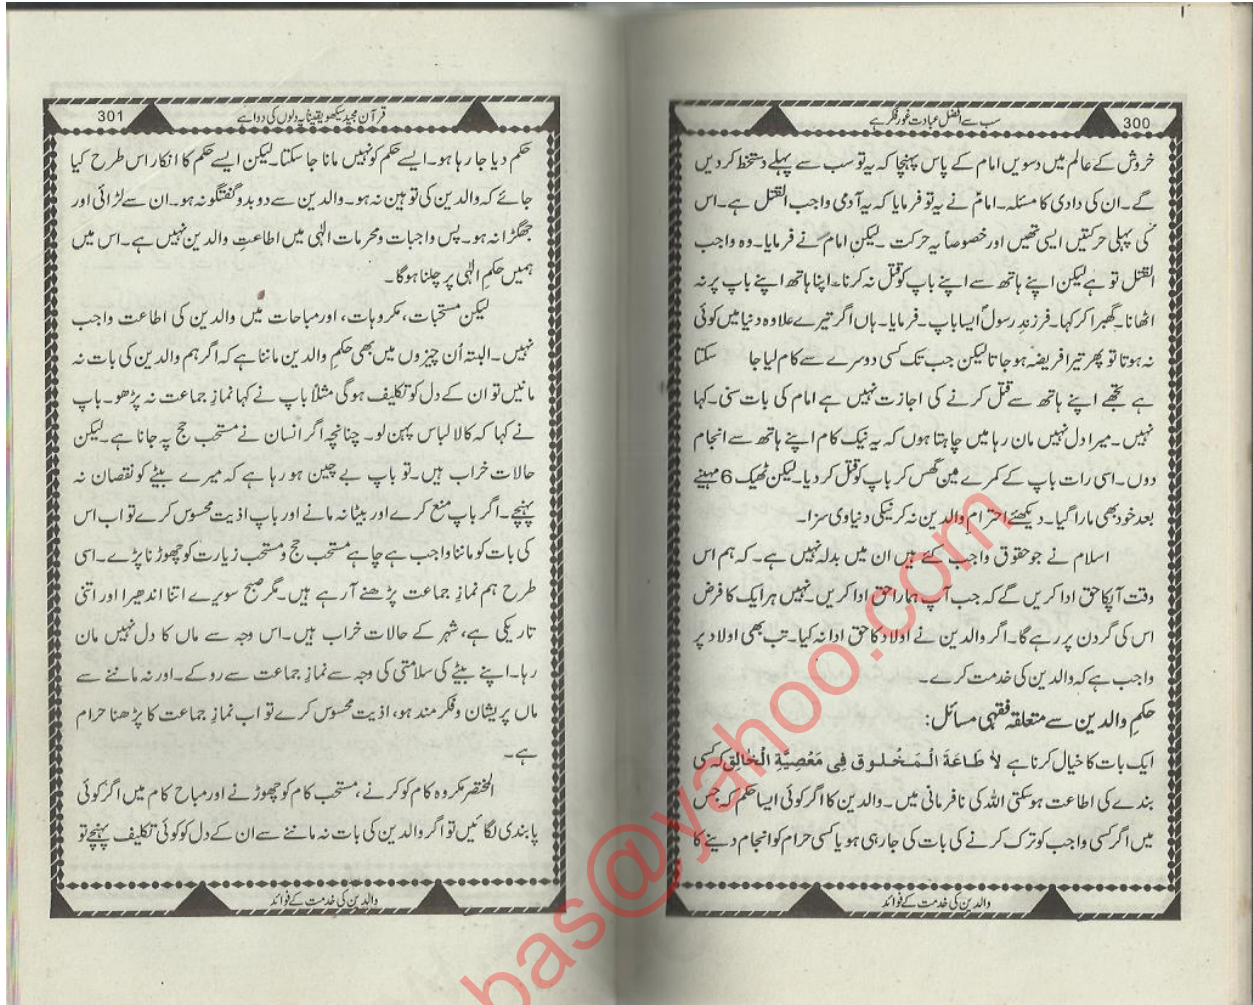 300
سب سے افضل عبادت غور و فکر ہے
خروش کے عالم میں دسویں امام کے پاس پہنچا کہ یہ تو سب سے پہلے دستخط کر دیں
گے۔ ان کی دادی کا مسئلہ۔ امامؑ نے یہ تو فرمایا کہ یہ آدمی واجب القتل ہے۔ اس
کی پہلی حرکتیں ایسی تھیں اور خصوصاً یہ حرکت ۔ لیکن امامؑ نے فرمایا۔ وہ واجب
القتل تو ہے لیکن اپنے ہاتھ سے اپنے باپ کو قتل نہ کرنا۔ اپنا ہاتھ اپنے باپ پر نہ
اٹھانا۔ گھبرا کر کہا۔ فرزندِ رسولؐ ایسا باپ۔ فرمایا۔ ہاں اگر تیرے علاوہ دنیا میں کوئی
نہ ہوتا تو پھر تیرا فریضہ ہو جاتا لیکن جب تک کسی دوسرے سے کام لیا جا سکتا
ہے تجھے اپنے ہاتھ سے قتل کرنے کی اجازت نہیں ہے امام کی بات سنی۔ کہا
نہیں۔ میرا دل نہیں مان رہا میں چاہتا ہوں کہ یہ نیک کام اپنے ہاتھ سے انجام
دوں۔ اسی رات باپ کے کمرے مین گھس کر باپ کو قتل کر دیا۔ لیکن ٹھیک 6 مہینے
بعد خود بھی مارا گیا۔ دیکھئے احترام والدین نہ کرنیکی دنیاوی سزا۔
اسلام نے جو حقوق واجب کئے ہیں ان میں بدلہ نہیں ہے۔ کہ ہم اس
وقت آپکا حق ادا کریں گے کہ جب آپ ہمارا حق ادا کریں۔ نہیں ہر ایک کا فرض
اس کی گردن پر رہے گا۔ اگر والدین نے اولاد کا حق ادا نہ کیا۔ تب بھی اولاد پر
واجب ہے کہ والدین کی خدمت کرے۔
حکمِ والدین سے متعلقہ فقہی مسائل:
ایک بات کا خیال کرنا ہے لاَ طَاعَةَ الْمَخْلُوق فِی مَعْصِيَّةِ الْخَالِق کہ کسی
بندے کی اطاعت ہو سکتی اللہ کی نافرمانی میں۔ والدین کا اگر کوئی ایسا حکم کہ جس
میں اگر کسی واجب کو ترک کرنے کی بات کی جا رہی ہو یا کسی حرام کو انجام دینے کا
والدین کی خدمت کے فوائد
301
قرآن مجید سیکھو یقیناً یہ دلوں کی دوا ہے
حکم دیا جا رہا ہو۔ ایسے حکم کو نہیں مانا جا سکتا۔ لیکن ایسے حکم کا انکار اس طرح کیا
جائے کہ والدین کی توہین نہ ہو۔ والدین سے دو بدو گفتگو نہ ہو۔ ان سے لڑائی اور
جھگڑا نہ ہو۔ پس واجبات و محرمات الٰہی میں اطاعتِ والدین نہیں ہے۔ اس میں
ہمیں حکمِ الٰہی پر چلنا ہوگا۔
لیکن مستحبات، مکروہات، اور مباحات میں والدین کی اطاعت واجب
نہیں۔ البتہ اُن چیزوں میں بھی حکمِ والدین ماننا ہے کہ اگر ہم والدین کی بات نہ
مانیں تو ان کے دل کو تکلیف ہوگی مثلاً باپ نے کہا نمازِ جماعت نہ پڑھو۔ باپ
نے کہا کہ کالا لباس پہن لو۔ چنانچہ اگر انسان نے مستحب حج پہ جانا ہے۔ لیکن
حالات خراب ہیں۔ تو باپ بے چین ہو رہا ہے کہ میرے بیٹے کو نقصان نہ
پہنچے۔ اگر باپ منع کرے اور بیٹا نہ مانے اور باپ اذیت محسوس کرے تو اب اس
کی بات کو ماننا واجب ہے چاہے مستحب حج و مستحب زیارت کو چھوڑنا پڑے۔ اسی
طرح ہم نمازِ جماعت پڑھنے آ رہے ہیں۔ مگر صبح سویرے اتنا اندھیرا اور اتنی
تاریکی ہے، شہر کے حالات خراب ہیں۔ اس وجہ سے ماں کا دل نہیں مان
رہا۔ اپنے بیٹے کی سلامتی کی وجہ سے نمازِ جماعت سے روکے۔ اور نہ ماننے سے
ماں پریشان و فکر مند ہو، اذیت محسوس کرے تو اب نمازِ جماعت کا پڑھنا حرام
ہے۔
المختصر مکروہ کام کو کرنے، مستحب کام کو چھوڑنے اور مباح کام میں اگر کوئی
پابندی لگائیں تو اگر والدین کی بات نہ ماننے سے ان کے دل کو کوئی تکلیف پہنچے تو
والدین کی خدمت کے فوائد
bas@yahoo.com